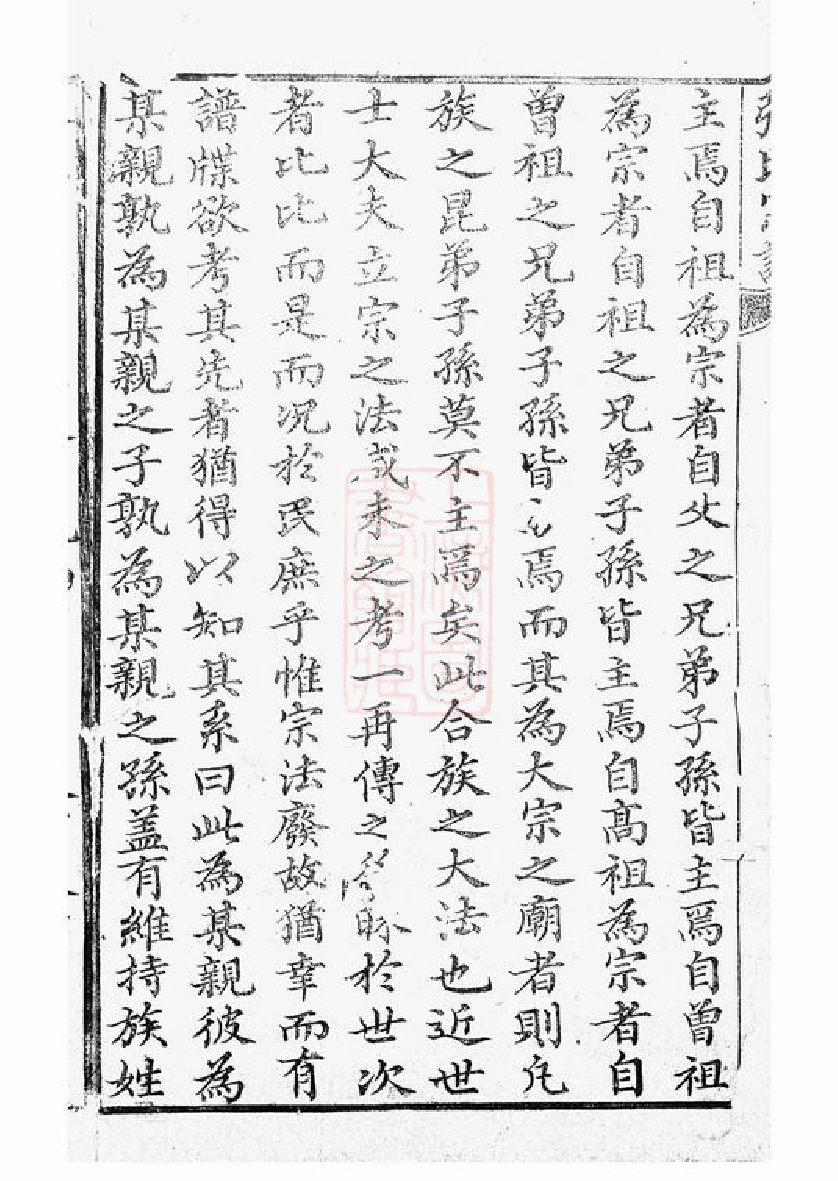 張氏宗譜
主焉自祖為宗者自父之兄弟子孫皆主焉自曾祖
為宗者自祖之兄弟子孫皆主焉自高祖為宗者自
曾祖之兄弟子孫皆主焉而其為大宗之廟者則凡
族之昆弟子孫莫不主焉矣此合族之大法也近世
士大夫立宗之法或未之考一再傳之後昧於世次
者比比而是而况於民庶乎惟宗法廢故猶幸而有
譜牒欲考其先者猶得以知其系曰此為某親彼為
某親孰為某親之子孰為某親之孫盖有維持族姓